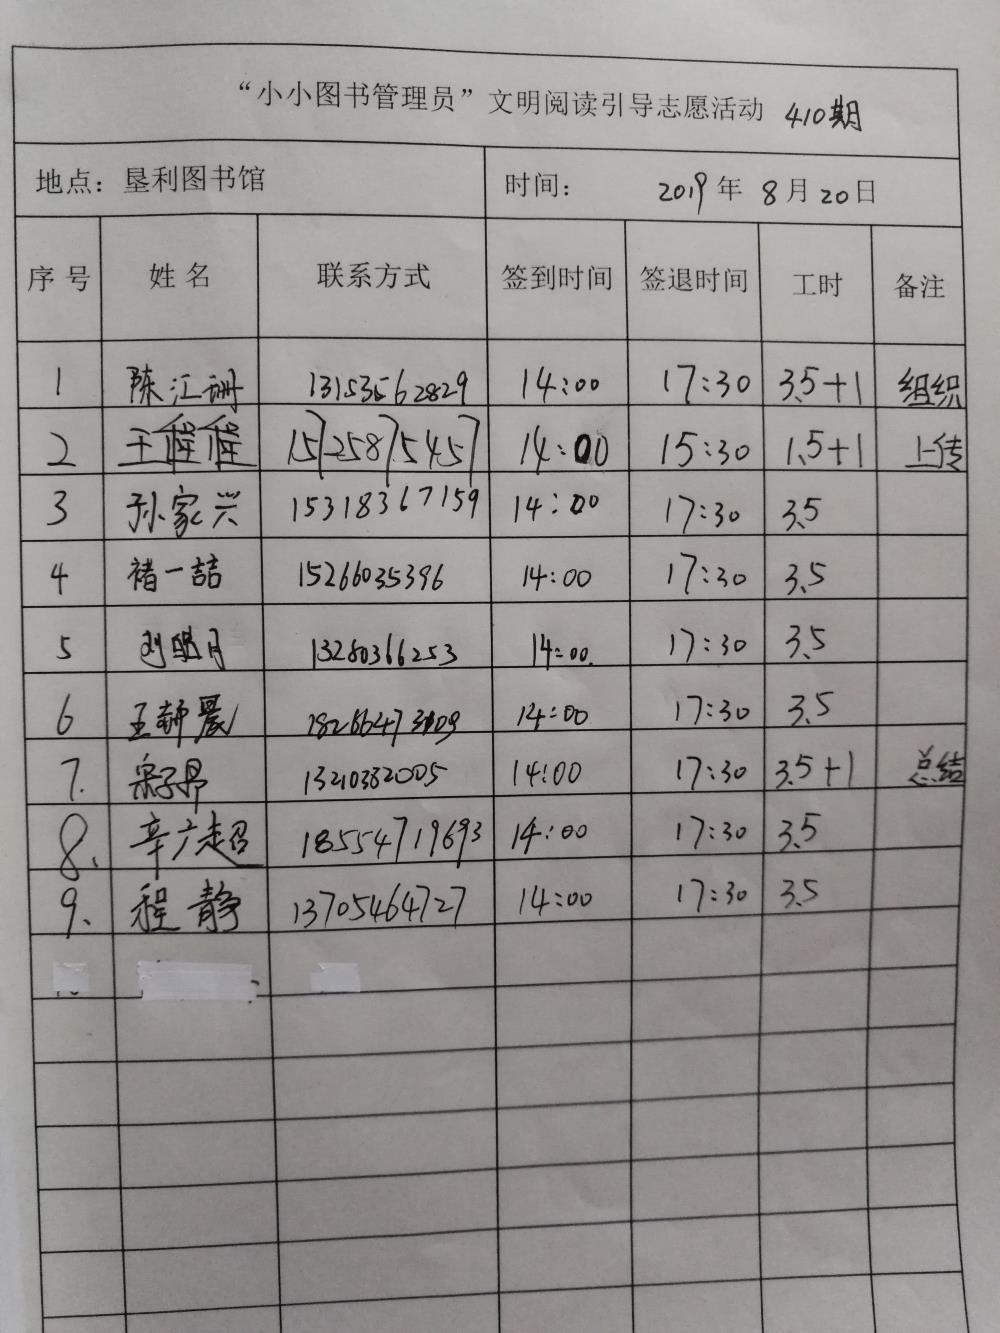 “小小图书管理员”文明阅读引导志愿活动 410期
地点：垦利图书馆 时间： 2019年 8月20日
序号 姓名 联系方式 签到时间 签退时间 工时 备注
1 陈江珊 13153562829 14:00 17:30 3.5+1 组织
2 王 15725875457 14:00 15:30 1.5+1 上传
3 孙家兴 15318367159 14:00 17:30 3.5
4 褚一喆 15266035396 14:00 17:30 3.5
5 刘明月 13280366253 14:00 17:30 3.5
6 王 晨 14:00 17:30 3.5
7. 13210382005 14:00 17:30 3.5+1 总结
8. 辛广超 18554719693 14:00 17:30 3.5
9. 程静 13705464727 14:00 17:30 3.5